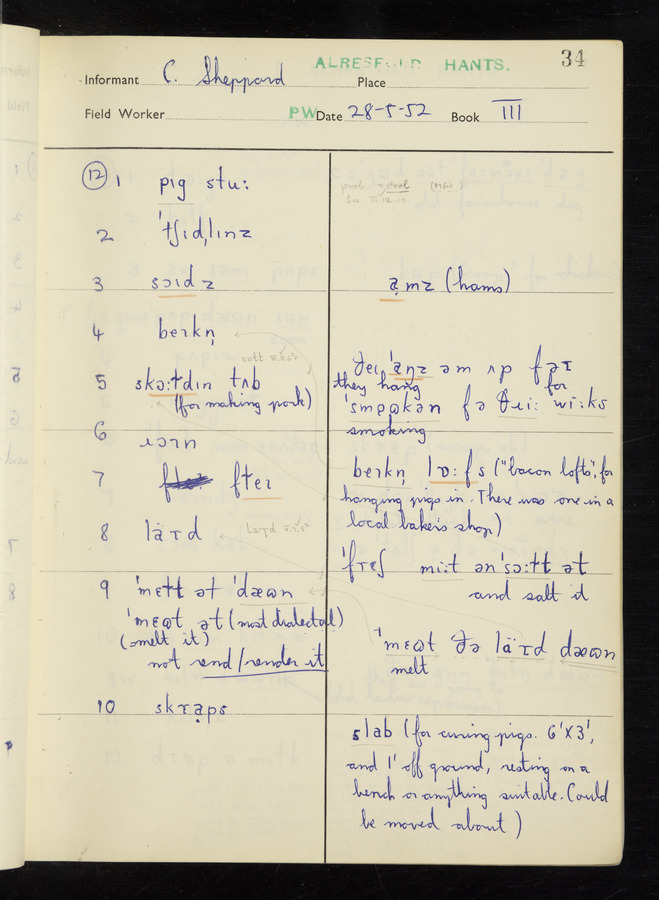 34
ALRESFORD HANTS.
Informant C. Sheppard Place
Field Worker PW Date 28-5-52 Book III
(12) 1 pɪg stuː
2 ˈtʃɪdˌlɪnz
3 sɔɪdz
ạmz (hams)
4 beɪkn̩
5 skɔːtdɪn tʌb
(for making pork)
ðeɪ ˈaŋz əm ʌp fəɾ
they hang for
ˈsmoʊkən fə ðɹiː wiːks
smoking
6 ɹɔɪn
7 fleɪ
beɪkn̩ lɒːfs ("bacon lofts", for
hanging pigs in. There was one in a
local baker's shop)
8 läɾd
9 ˈmeɫt ət ˈdæʊn
ˈmɛʊt ət (most dialectal)
(=melt it)
not rend/render it
ˈfɾeʃ miːt ən ˈsɔːɫt ət
and salt it
ˈmɛʊt ðə läɾd dæʊn
melt
10 skɾạps
slab (for curing pigs. 6'X3',
and 1' off ground, resting on a
bench or anything suitable. Could
be moved about)